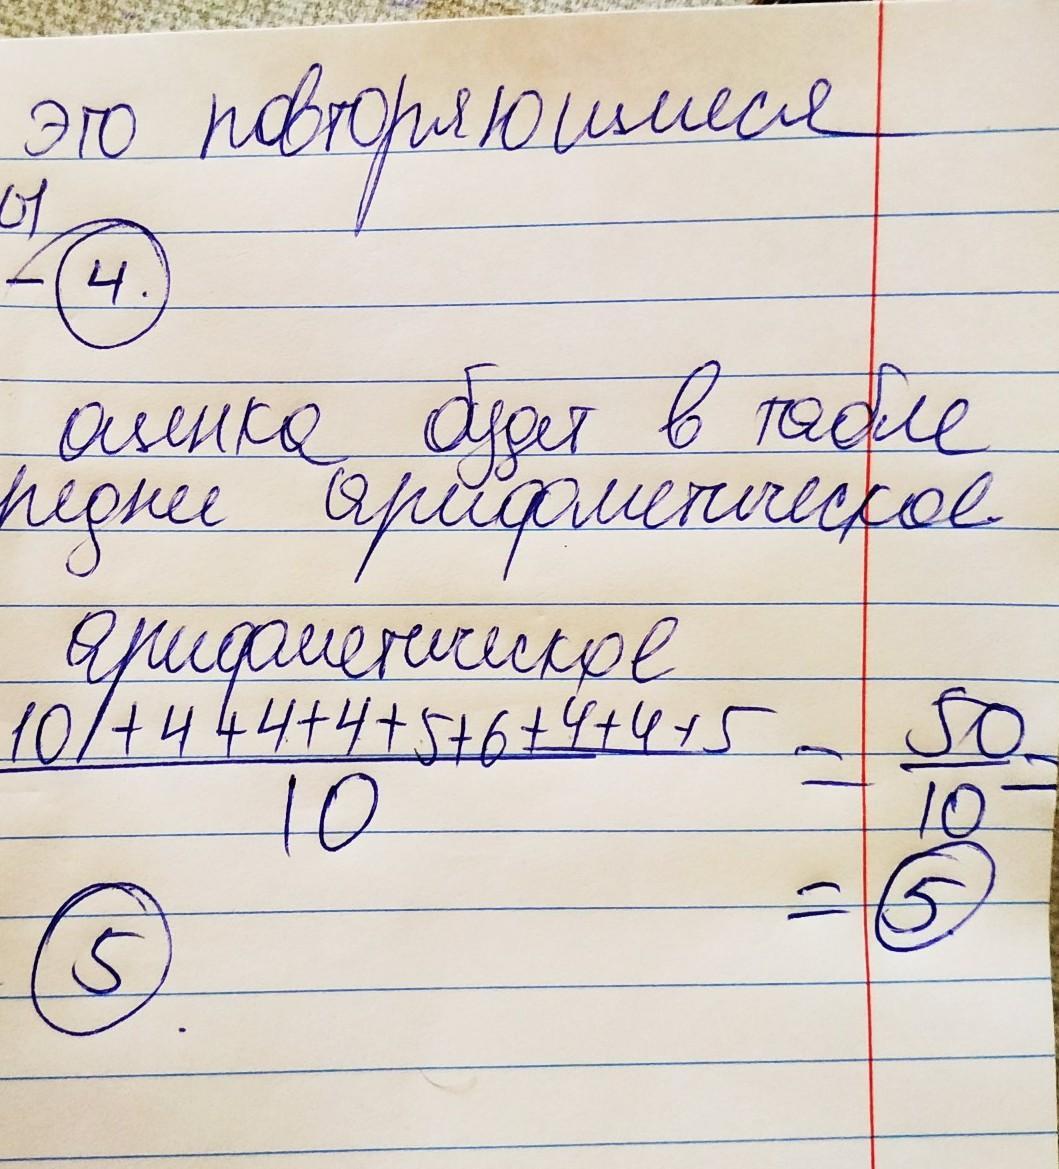 это повторяющиеся
- 4.
оценка будет в табле
реднее арифметическое
арифметическое
10/+4+4+4+5+6+4+4+5 = 50 =
10 10
= 5
5